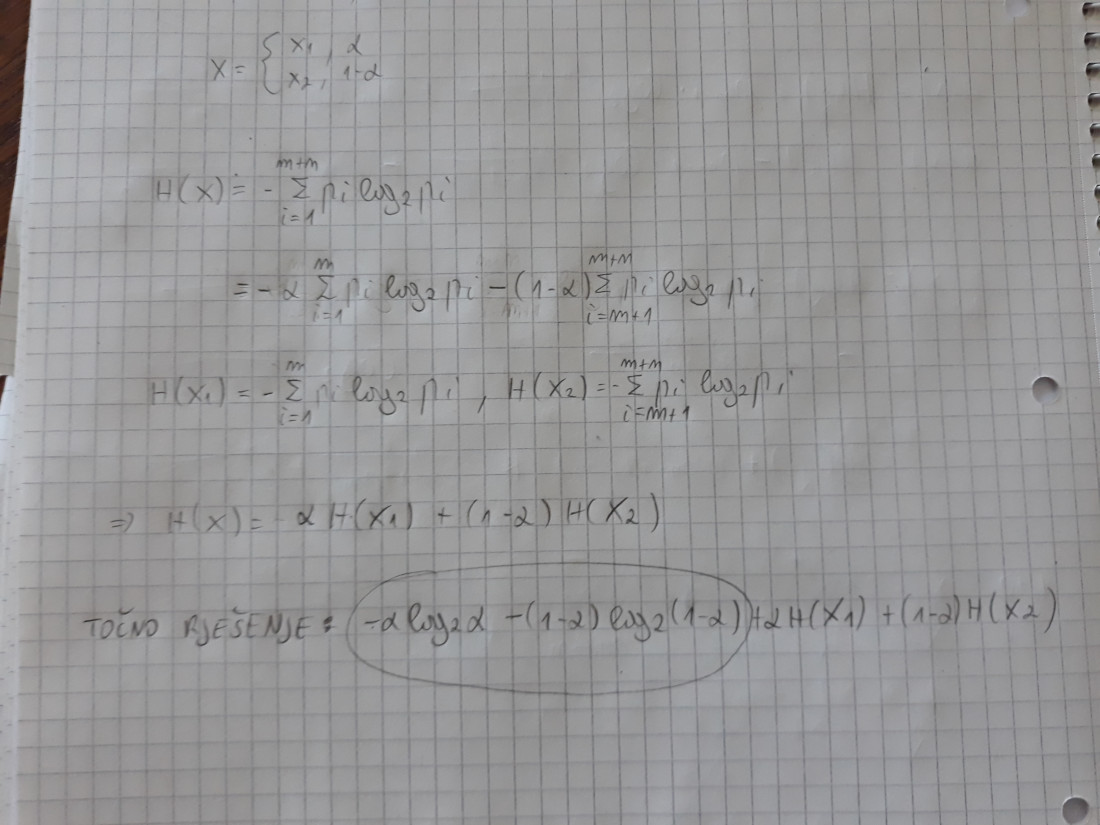 X = { x₁, α
x₂, 1-α
H(X) = - Σ_{i=1}^{m+n} pᵢ log₂ pᵢ
= - α Σ_{i=1}^{m} pᵢ log₂ pᵢ - (1-α) Σ_{i=m+1}^{m+n} pᵢ log₂ pᵢ
H(X₁) = - Σ_{i=1}^{m} pᵢ log₂ pᵢ , H(X₂) = - Σ_{i=m+1}^{m+n} pᵢ log₂ pᵢ
⇒ H(X) = α H(X₁) + (1-α) H(X₂)
TOČNO RJEŠENJE : -α log₂ α - (1-α) log₂ (1-α) + α H(X₁) + (1-α) H(X₂)